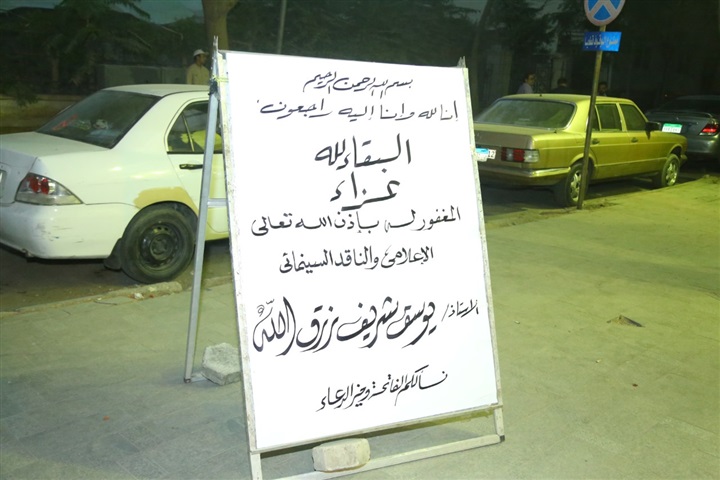 بسم الله الرحمن الرحيم
إنا لله وإنا إليه راجعون
البقاء لله
عزاء
المغفور له بإذن الله تعالى
الإعلامى والناقد السينمائى
الأستاذ/ يوسف شريف رزق الله
نسألكم الفاتحة وخير الدعاء